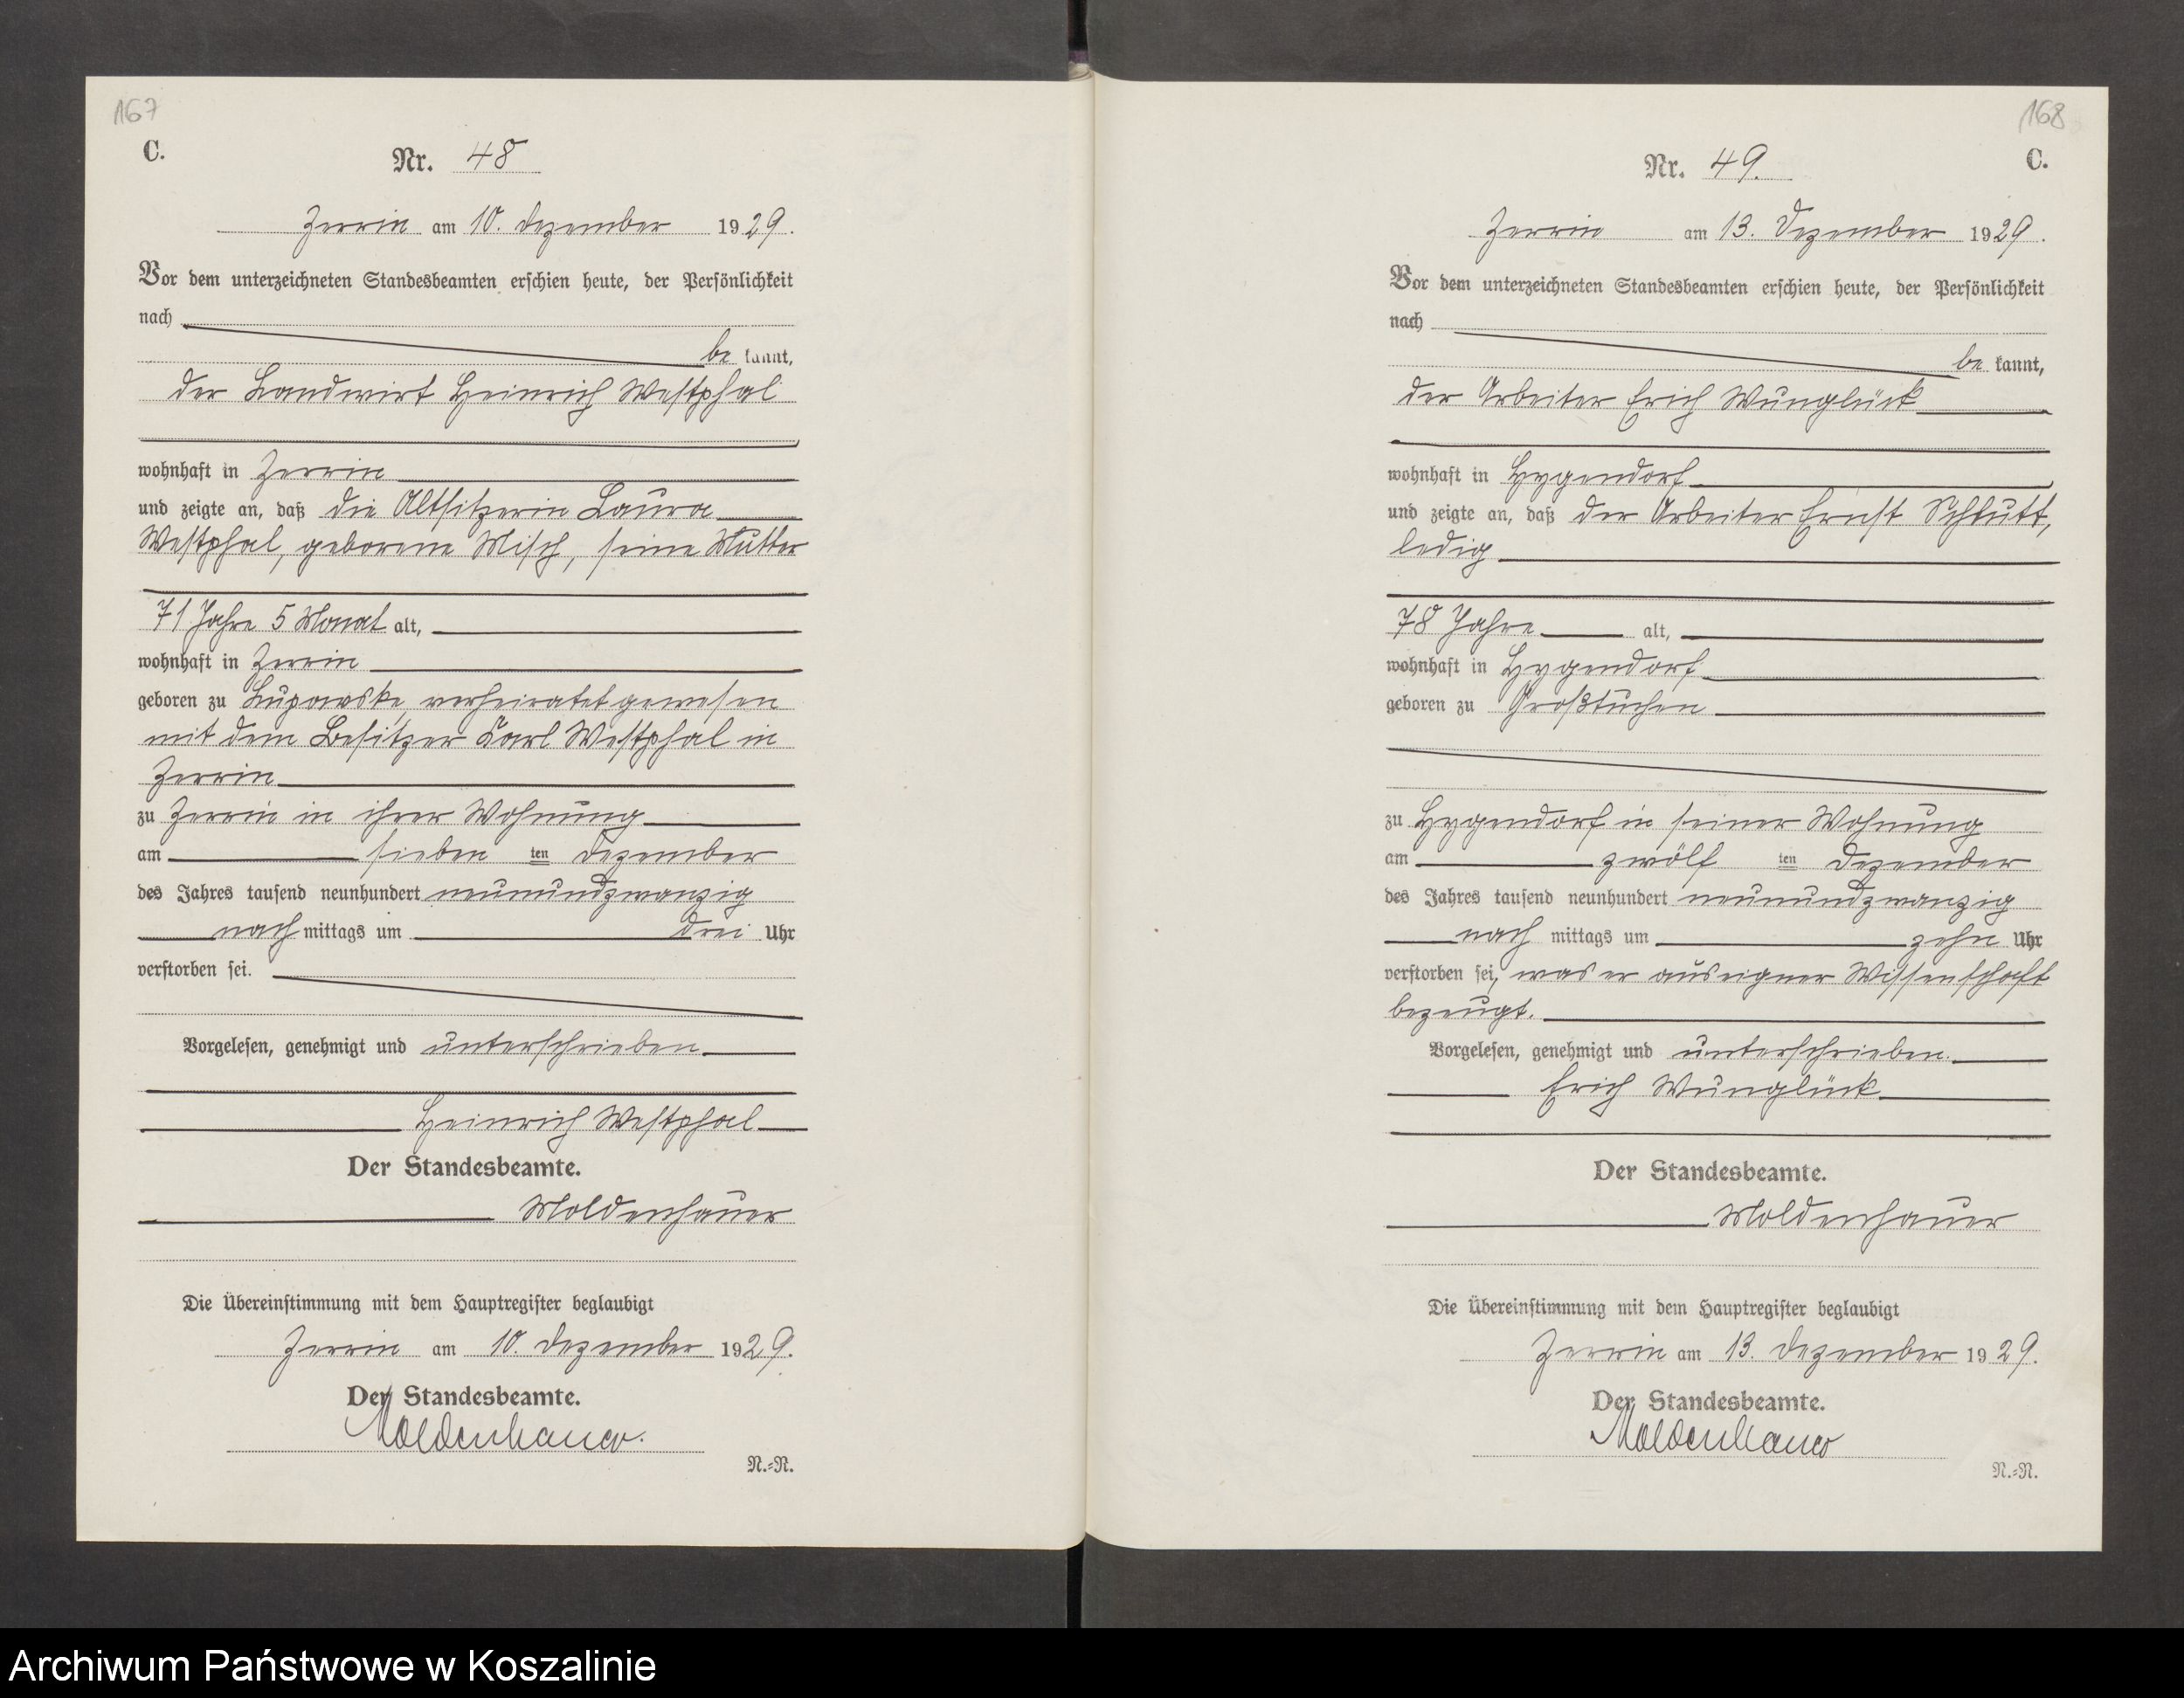 167
C.
Nr. 48
Zerrin am 10. Dezember 1929.
Vor dem unterzeichneten Standesbeamten erschien heute, der Persönlichkeit
nach
be kannt,
der Landwirt Heinrich Westphal
wohnhaft in Zerrin
und zeigte an, daß die Altsitzerin Laura
Westphal, geborene Misch, seine Mutter
71 Jahre 5 Monat alt,
wohnhaft in Zerrin
geboren zu Lupowske, verheiratet gewesen
mit dem Besitzer Karl Westphal in
Zerrin
zu Zerrin in ihrer Wohnung
am sieben ten Dezember
des Jahres tausend neunhundert neunundzwanzig
nach mittags um drei Uhr
verstorben sei.
Vorgelesen, genehmigt und unterschrieben
Heinrich Westphal
Der Standesbeamte.
Moldenhauer
Die Übereinstimmung mit dem Hauptregister beglaubigt
Zerrin am 10. Dezember 1929.
Der Standesbeamte.
Moldenhauer.
N.=R.
168
C.
Nr. 49.
Zerrin am 13. Dezember 1929.
Vor dem unterzeichneten Standesbeamten erschien heute, der Persönlichkeit
nach
be kannt,
der Arbeiter Erich Wunglück
wohnhaft in Hygendorf
und zeigte an, daß der Arbeiter Ernst Schkutt,
ledig
78 Jahre alt,
wohnhaft in Hygendorf
geboren zu Großtuchen
zu Hygendorf in seiner Wohnung
am zwölf ten Dezember
des Jahres tausend neunhundert neunundzwanzig
nach mittags um zehn Uhr
verstorben sei, was er aus eigner Wissenschaft
bezeugt.
Vorgelesen, genehmigt und unterschrieben.
Erich Wunglück
Der Standesbeamte.
Moldenhauer
Die Übereinstimmung mit dem Hauptregister beglaubigt
Zerrin am 13. Dezember 1929.
Der Standesbeamte.
Moldenhauer
N.=R.
Archiwum Państwowe w Koszalinie